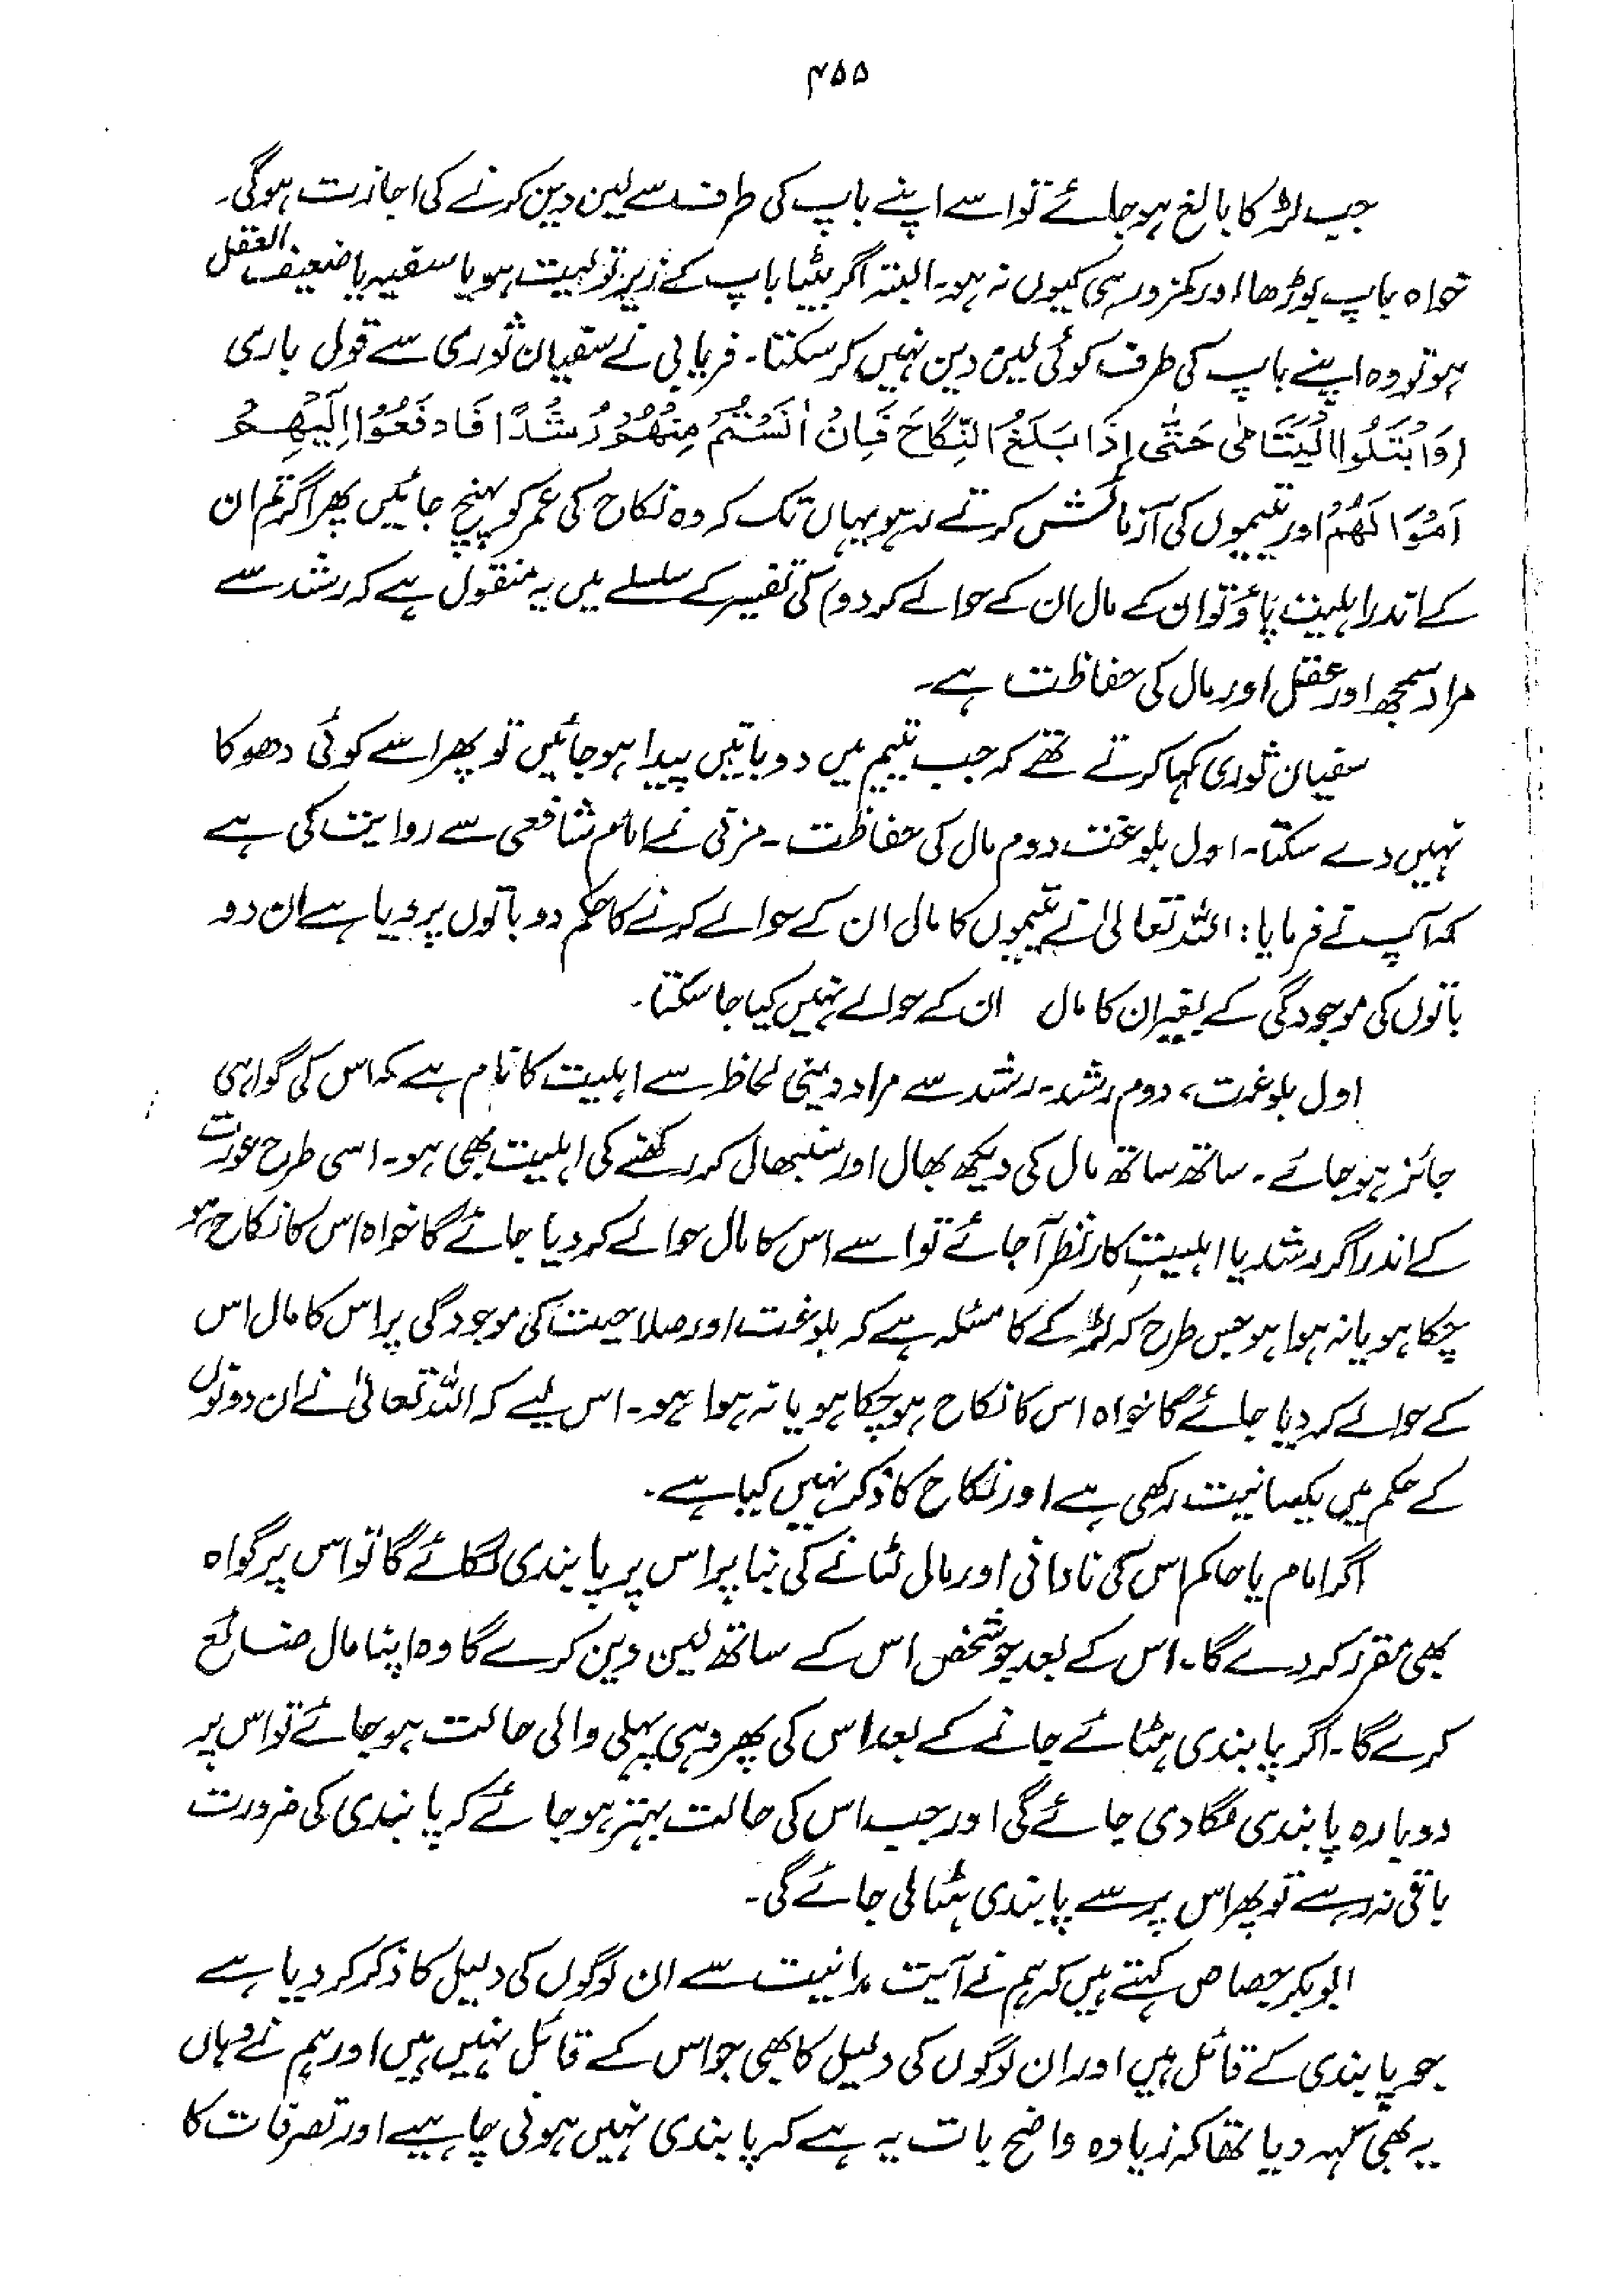 ۴۵۵
جب لڑکا بالغ ہوجائے تو اسے اپنے باپ کی طرف سے لین دین کرنے کی اجازت ہوگی۔
خواہ باپ بوڑھا اور کمزور ہی کیوں نہ ہو۔ البتہ اگر بیٹا باپ کے زیر تولیت ہو یا سفیہ یا ضعیف العقل
ہو تو وہ اپنے باپ کی طرف کوئی لین دین نہیں کرسکتا۔ فریابی نے سفیان ثوری سے قول باری
(وَابْتَلُوا الْيَتَامٰى حَتّٰى إِذَا بَلَغُوا النِّكَاحَ فَإِنْ اٰنَسْتُمْ مِنْهُمْ رُشْدًا فَادْفَعُوْا إِلَيْهِمْ
اَمْوَالَهُمْ اور یتیموں کی آزمائش کرتے رہو یہاں تک کہ وہ نکاح کی عمر کو پہنچ جائیں پھر اگر تم ان
کے اندر اہلیت پاؤ تو ان کے مال ان کے حوالے کردو) کی تفسیر کے سلسلے میں یہ منقول ہے کہ رشد سے
مراد سمجھ اور عقل اور مال کی حفاظت ہے۔
سفیان ثوری کہا کرتے تھے کہ جب یتیم میں دو باتیں پیدا ہوجائیں تو پھر اسے کوئی دھوکا
نہیں دے سکتا۔ اول بلوغت دوم مال کی حفاظت۔ مزنی نے امام شافعی سے روایت کی ہے
کہ آپ نے فرمایا: اللہ تعالیٰ نے یتیموں کا مال ان کے حوالے کرنے کا حکم دو باتوں پر دیا ہے ان دو
باتوں کی موجودگی کے بغیر ان کا مال ان کے حوالے نہیں کیا جا سکتا۔
اول بلوغت، دوم رشد۔ رشد سے مراد دینی لحاظ سے اہلیت کا نام ہے کہ اس کی گواہی
جائز ہوجائے۔ ساتھ ساتھ مال کی دیکھ بھال اور سنبھال کر رکھنے کی اہلیت بھی ہو۔ اسی طرح عورت
کے اندر اگر رشد یا اہلیتِ کار نظر آجائے تو اسے اس کا مال حوالے کردیا جائے گا خواہ اس کا نکاح ہو
چکا ہو یا نہ ہوا ہو جس طرح کہ لڑکے کا مسئلہ ہے کہ بلوغت اور صلاحیت کی موجودگی پر اس کا مال اس
کے حوالے کر دیا جائے گا خواہ اس کا نکاح ہوچکا ہو یا نہ ہوا ہو۔ اس لیے کہ اللہ تعالیٰ نے ان دونوں
کے حکم میں یکسانیت رکھی ہے اور نکاح کا ذکر نہیں کیا ہے۔
اگر امام یا حاکم اس کی نادانی اور مال لٹانے کی بنا پر اس پر پابندی لگائے گا تو اس پر گواہ
بھی مقرر کردے گا۔ اس کے بعد جو شخص اس کے ساتھ لین دین کرے گا وہ اپنا مال ضائع
کرے گا۔ اگر پابندی ہٹائے جانے کے بعد اس کی پھر وہی پہلی والی حالت ہوجائے تو اس پر
دوبارہ پابندی لگادی جائے گی اور جب اس کی حالت بہتر ہوجائے کہ پابندی کی ضرورت
باقی نہ رہے تو پھر اس پر سے پابندی ہٹالی جائے گی۔
ابوبکر جصاص کہتے ہیں کہ ہم نے آیت مداینت سے ان لوگوں کی دلیل کا ذکر کردیا ہے
جو پابندی کے قائل ہیں اور ان لوگوں کی دلیل کا بھی جو اس کے قائل نہیں ہیں اور ہم نے وہاں
یہ بھی کہہ دیا تھا کہ زیادہ واضح بات یہ ہے کہ پابندی نہیں ہونی چاہیے اور تصرفات کا